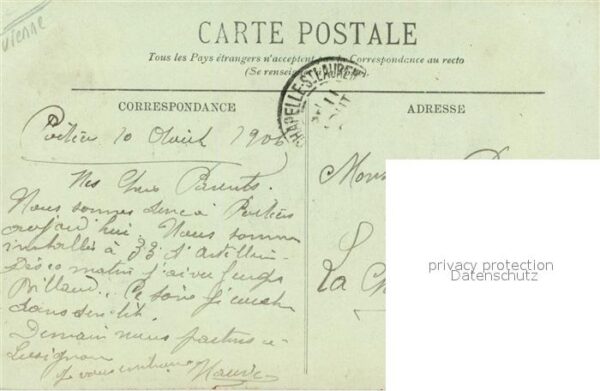 Vienne
CARTE POSTALE
Tous les Pays étrangers n'acceptent pas la Correspondance au recto
(Se renseigner
CHAPELLE-ST-LAURENT
11
CORRESPONDANCE
ADRESSE
Poitiers 10 Août 1906
Mes Chers Parents.
Nous sommes donc à Poitiers
aujourd'hui. Nous sommes
installés à 33e d'Artillerie
matin j'ai vu
Billaud. Ce soir je couche
dans un lit.
Demain nous partons à
Lusignan
Je vous embrasse Maurice
La Ch
privacy protection
Datenschutz